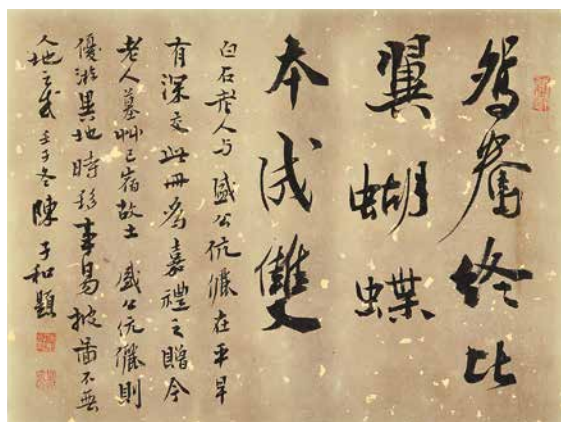 鴛鴦終比
翼蝴蝶
本成雙
白石老人与 盛公伉儷在平早
有深交此冊為嘉禮之贈今
老人墓艸已宿故土 盛公伉儷則
優游異地時移事易披圖不無
人地之感壬子冬陳子和題